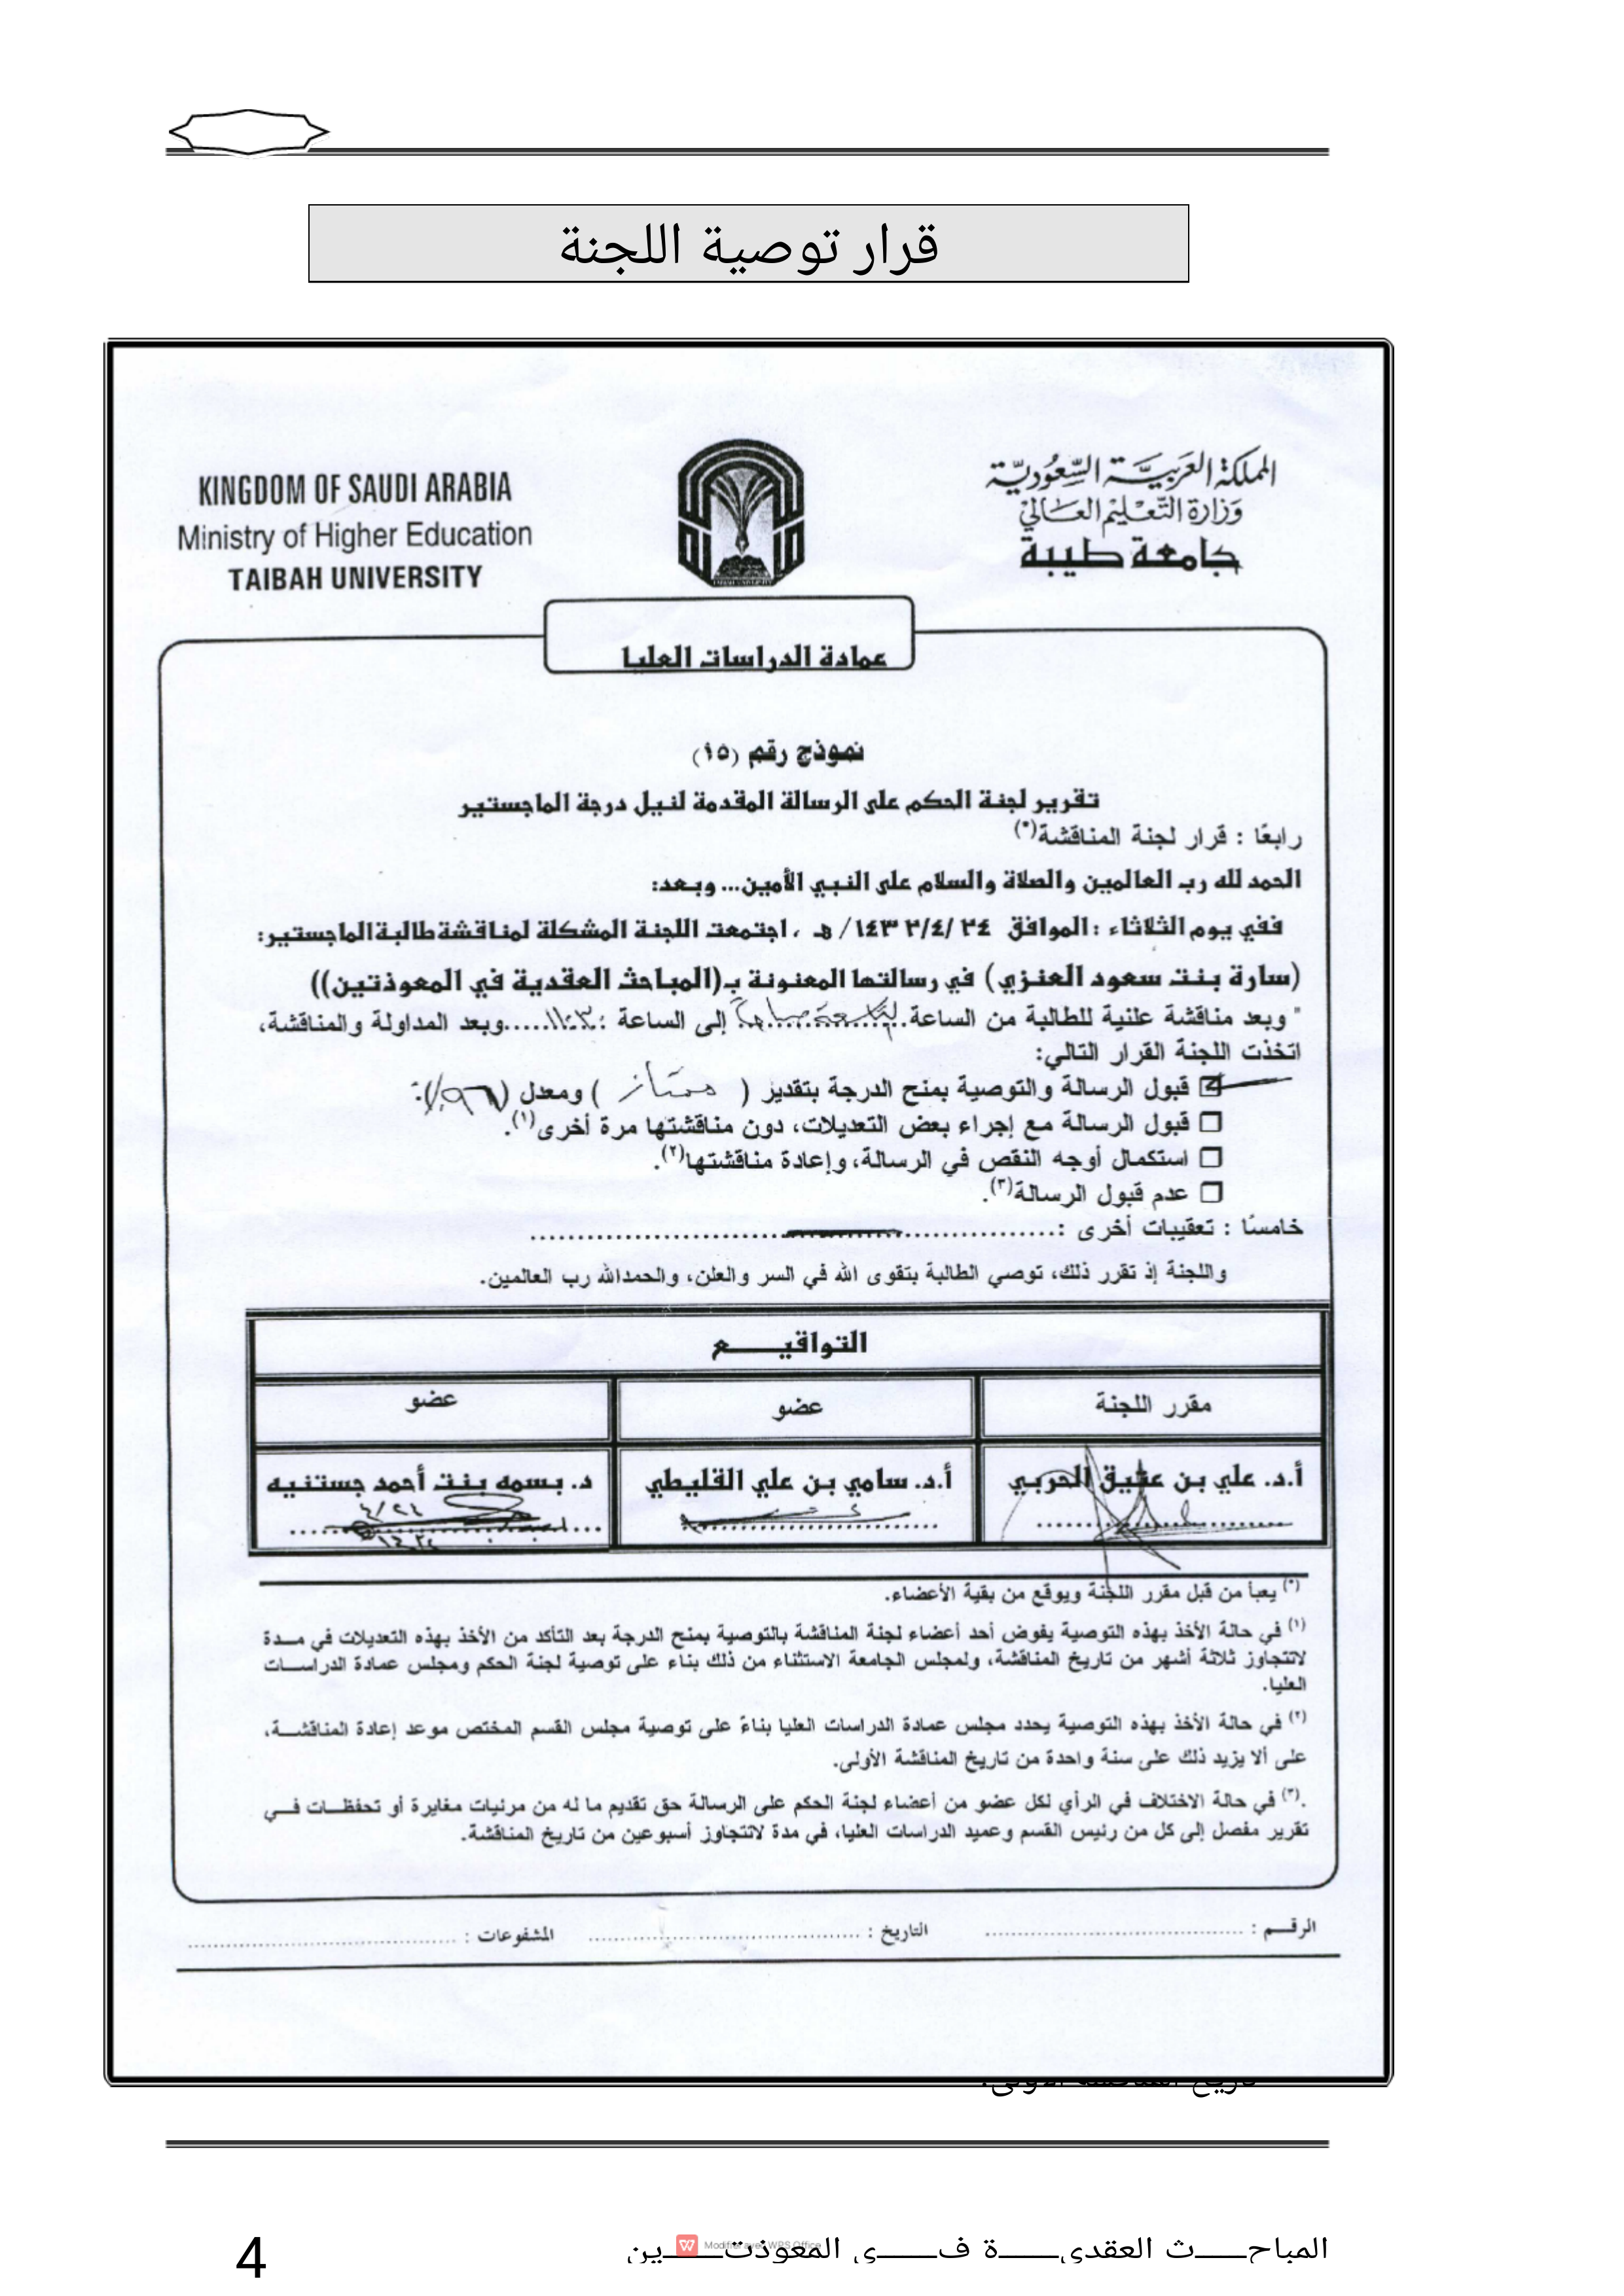 قرار توصية اللجنة
KINGDOM OF SAUDI ARABIA
Ministry of Higher Education
TAIBAH UNIVERSITY
المملكة العربية السعودية
وزارة التعليم العالي
جامعة طيبة
عمادة الدراسات العليا
نموذج رقم (١٥)
تقرير لجنة الحكم على الرسالة المقدمة لنيل درجة الماجستير
رابعًا : قرار لجنة المناقشة(*)
الحمد لله رب العالمين والصلاة والسلام على النبي الأمين... وبعد:
ففي يوم الثلاثاء : الموافق ٢٤ /٤/٢ ١٤٣/ هـ ، اجتمعت اللجنة المشكلة لمناقشة طالبة الماجستير:
(سارة بنت سعود العنزي) في رسالتها المعنونة بـ(المباحث العقدية في المعوذتين))
" وبعد مناقشة علنية للطالبة من الساعة إلى الساعة : ١١:٣٠ وبعد المداولة والمناقشة،
اتخذت اللجنة القرار التالي:
قبول الرسالة والتوصية بمنح الدرجة بتقدير ( ممتاز ) ومعدل (٩٦٪):
قبول الرسالة مع إجراء بعض التعديلات، دون مناقشتها مرة أخرى(١).
استكمال أوجه النقص في الرسالة، وإعادة مناقشتها(٢).
عدم قبول الرسالة(٣).
خامسًا : تعقيبات أخرى :
واللجنة إذ تقرر ذلك، توصي الطالبة بتقوى الله في السر والعلن، والحمدلله رب العالمين.
التواقيـــــع
مقرر اللجنة عضو عضو
أ.د. علي بن عتيق الحربي أ.د. سامي بن علي القليطي د. بسمه بنت أحمد جستنيه
٤/٢٤
(*) يعبأ من قبل مقرر اللجنة ويوقع من بقية الأعضاء.
(١) في حالة الأخذ بهذه التوصية يفوض أحد أعضاء لجنة المناقشة بالتوصية بمنح الدرجة بعد التأكد من الأخذ بهذه التعديلات في مـدة
لاتتجاوز ثلاثة أشهر من تاريخ المناقشة، ولمجلس الجامعة الاستثناء من ذلك بناء على توصية لجنة الحكم ومجلس عمادة الدراســات
العليا.
(٢) في حالة الأخذ بهذه التوصية يحدد مجلس عمادة الدراسات العليا بناءً على توصية مجلس القسم المختص موعد إعادة المناقشــة،
على ألا يزيد ذلك على سنة واحدة من تاريخ المناقشة الأولى.
.(٣) في حالة الاختلاف في الرأي لكل عضو من أعضاء لجنة الحكم على الرسالة حق تقديم ما له من مرئيات مغايرة أو تحفظــات فــي
تقرير مفصل إلى كل من رئيس القسم وعميد الدراسات العليا، في مدة لاتتجاوز أسبوعين من تاريخ المناقشة.
الرقـــم : التاريخ : المشفوعات :
تاريخ المناقشة الأولى.
المباحـــــث العقديـــــة فـــــي المعوذتـــــين
Modifier avec WPS Office
4